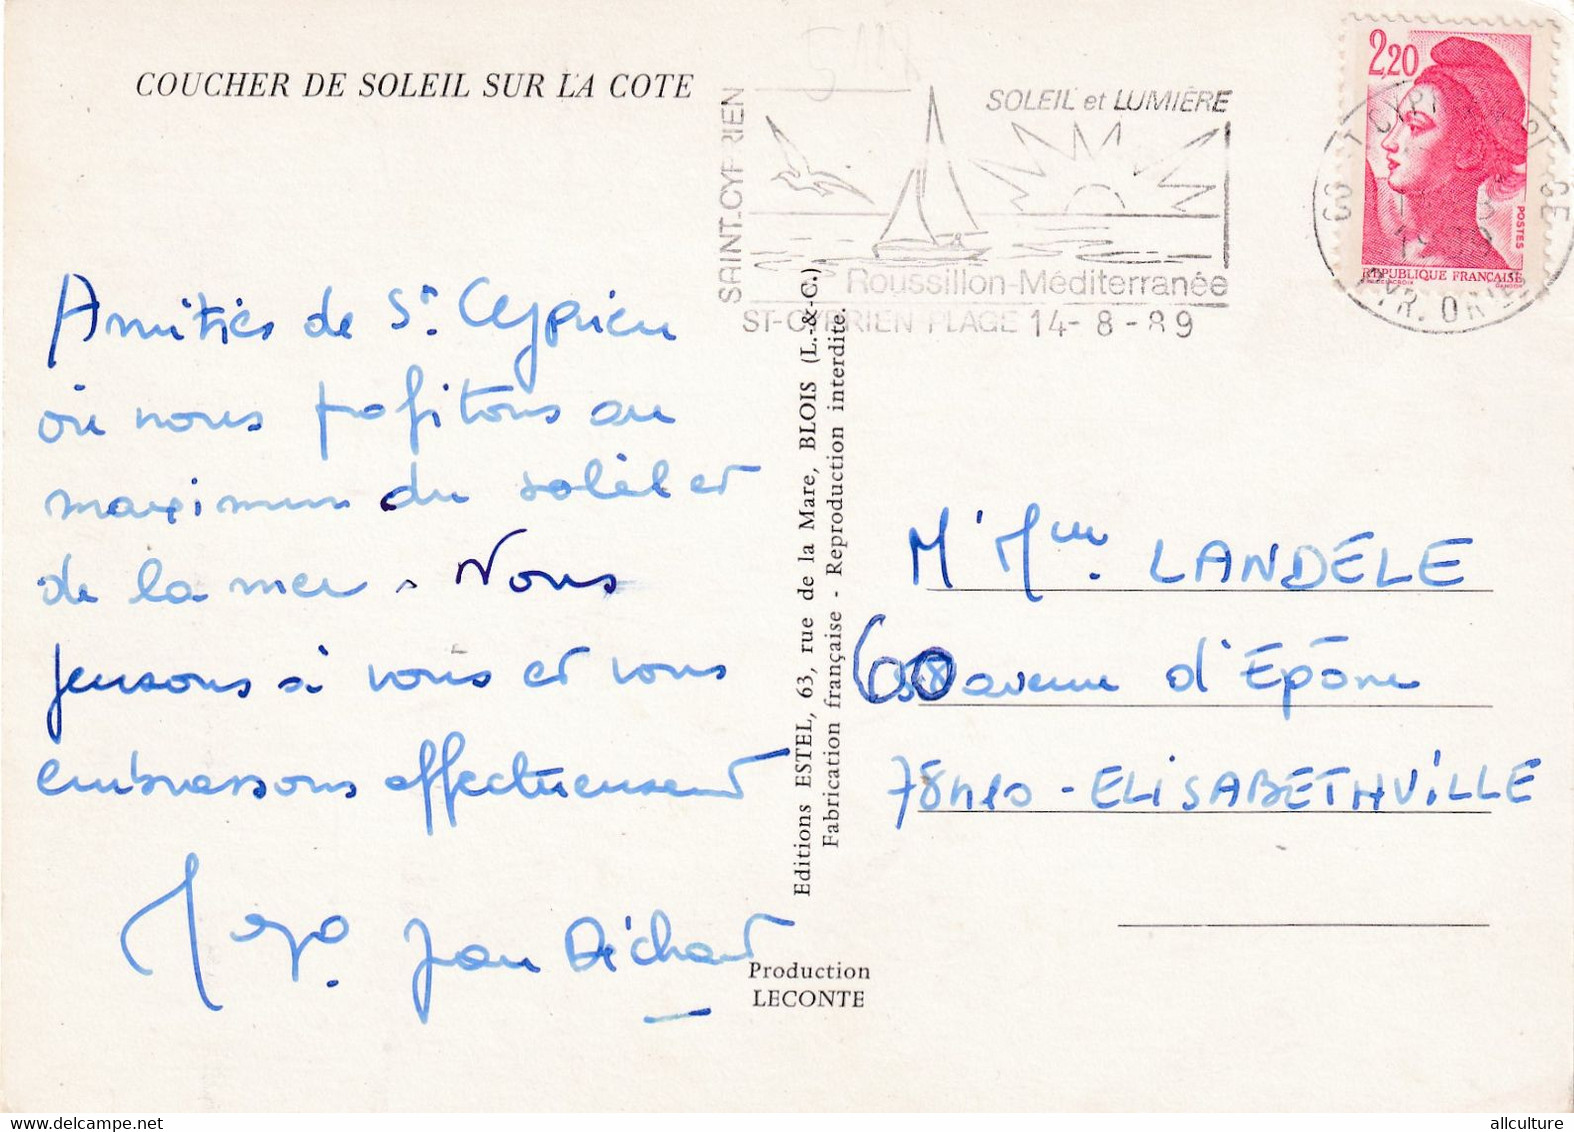 COUCHER DE SOLEIL SUR LA COTE
SAINT-CYPRIEN
SOLEIL et LUMIÈRE
Roussillon-Méditerranée
ST-CYPRIEN PLAGE 14-8-89
2,20
POSTES
REPUBLIQUE FRANÇAISE
PYR. OR
Amitiés de St Cyprien
où nous profitons au
maximum du soleil et
de la mer. Nous
pensons à vous et vous
embrassons affectueusement
Jean Richard
Editions ESTEL, 63, rue de la Mare, BLOIS (L.-&-C.)
Fabrication française - Reproduction interdite.
Production
LECONTE
Mr Mme. LANDELE
60 avenue d'Epône
78410 - ELISABETHVILLE
allculture